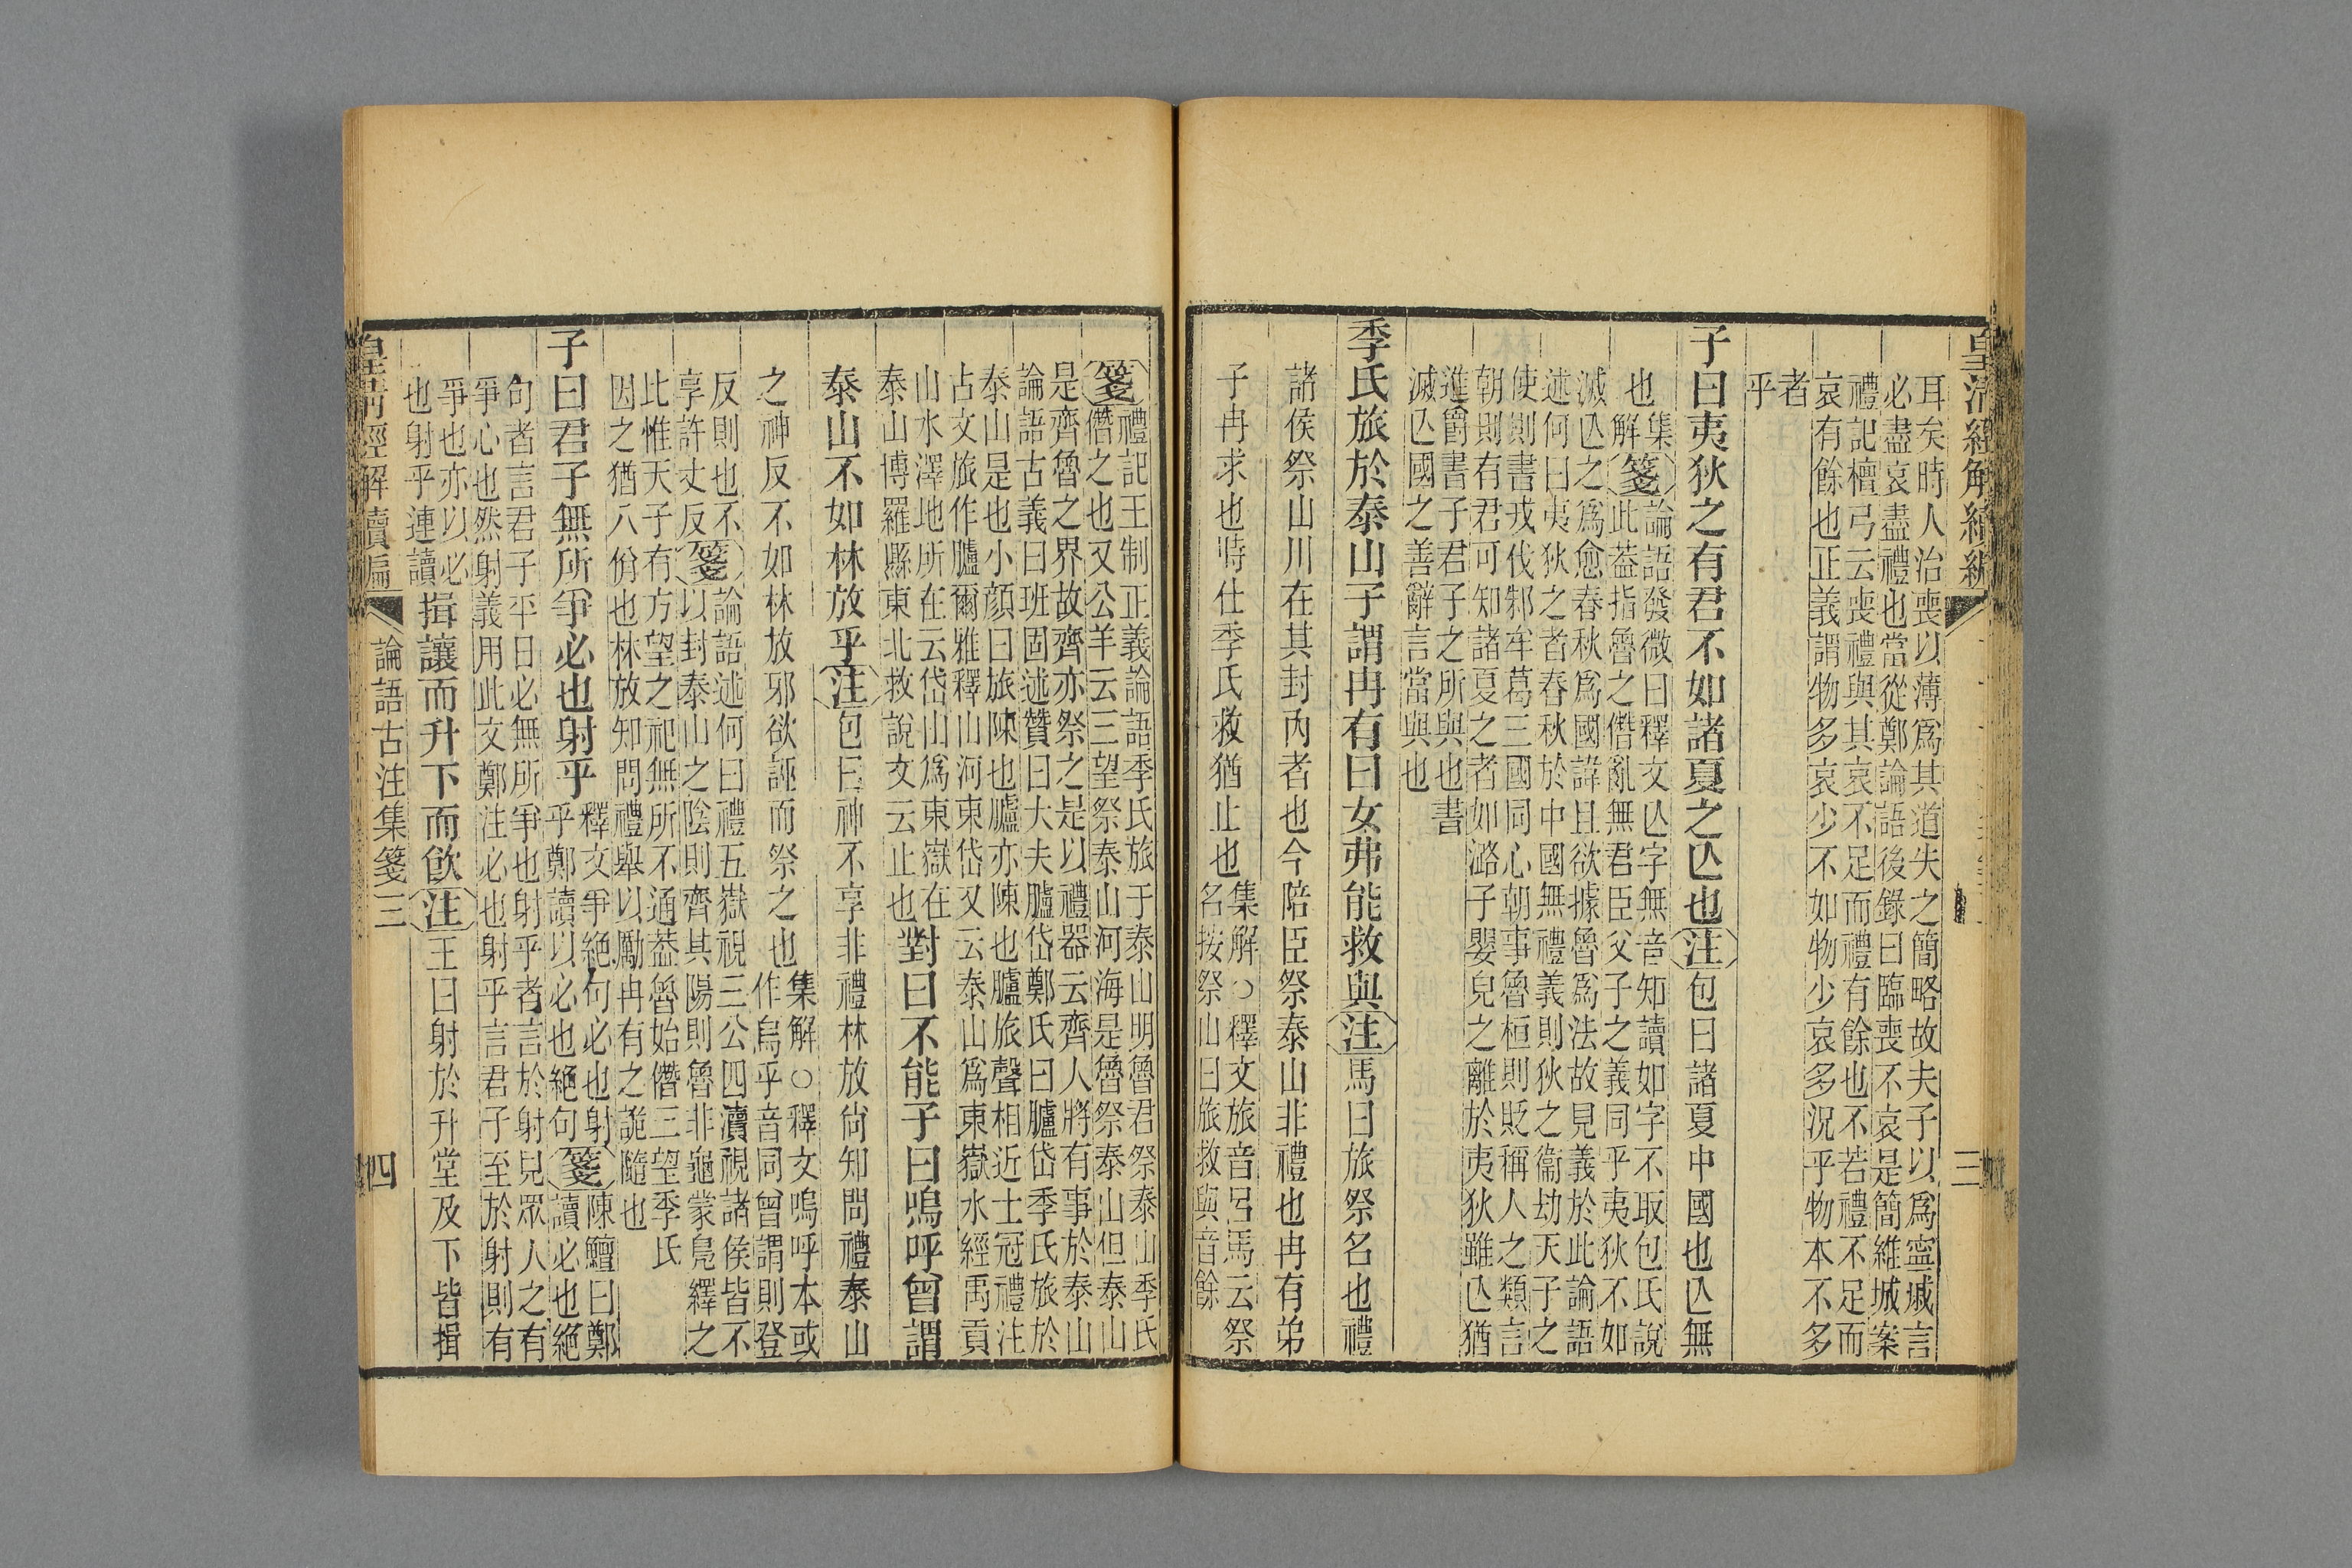 皇清經解續編
三
耳矣時人治喪以薄爲其道失之簡略故夫子以爲寧戚言
必盡哀盡禮也當從鄭論語後錄曰臨喪不哀是簡維城案
禮記檀弓云喪禮與其哀不足而禮有餘也不若禮不足而
哀有餘也正義謂物多哀少不如物少哀多況乎物本不多
者
乎
子曰夷狄之有君不如諸夏之亾也注包曰諸夏中國也亾無
也集解箋論語發微曰釋文亾字無音知讀如字不取包氏說
此葢指魯之僭亂無君臣父子之義同乎夷狄不如
滅亾之爲愈春秋爲國諱且欲據魯爲法故見義於此論語
述何曰夷狄之者春秋於中國無禮義則狄之衞劫天子之
使則書戎伐邾牟葛三國同心朝事魯桓則貶稱人之類言
朝則有君可知諸夏之者如潞子嬰兒之離於夷狄雖亾猶
進爵書子君子之所與也書
滅亾國之善辭言當與也
季氏旅於泰山子謂冉有曰女弗能救與注馬曰旅祭名也禮
諸侯祭山川在其封內者也今陪臣祭泰山非禮也冉有弟
子冉求也時仕季氏救猶止也集解○釋文旅音呂馬云祭
名按祭山曰旅救與音餘
箋禮記王制正義論語季氏旅于泰山明魯君祭泰山季氏
僭之也又公羊云三望祭泰山河海是魯祭泰山但泰山
是齊魯之界故齊亦祭之是以禮器云齊人將有事於泰山
論語古義曰班固述贊曰大夫臚岱鄭氏曰臚岱季氏旅於
泰山是也小顔曰旅陳也臚亦陳也臚旅聲相近士冠禮注
古文旅作臚爾雅釋山河東岱又云泰山爲東嶽水經禹貢
山水澤地所在云岱山爲東嶽在
泰山博羅縣東北救說文云止也對曰不能子曰嗚呼曾謂
泰山不如林放乎注包曰神不享非禮林放尙知問禮泰山
之神反不如林放邪欲誣而祭之也集解○釋文嗚呼本或
作烏乎音同曾謂則登
反則也不箋論語述何曰禮五嶽視三公四瀆視諸侯皆不
享許丈反以封泰山之陰則齊其陽則魯非龜蒙鳧繹之
此惟天子有方望之祀無所不通葢魯始僭三望季氏
因之猶八佾也林放知問禮舉以勵冉有之詭隨也
子曰君子無所爭必也射乎釋文爭絕句必也射箋陳鱣曰鄭
乎鄭讀以必也絕句讀必也絕
句者言君子平日必無所爭也射乎者言於射見眾人之有
爭心也然射義用此文鄭注必也射乎言君子至於射則有
爭也亦以必
也射乎連讀揖讓而升下而飮注王曰射於升堂及下皆揖
皇淸經解續編
論語古注集箋三
四